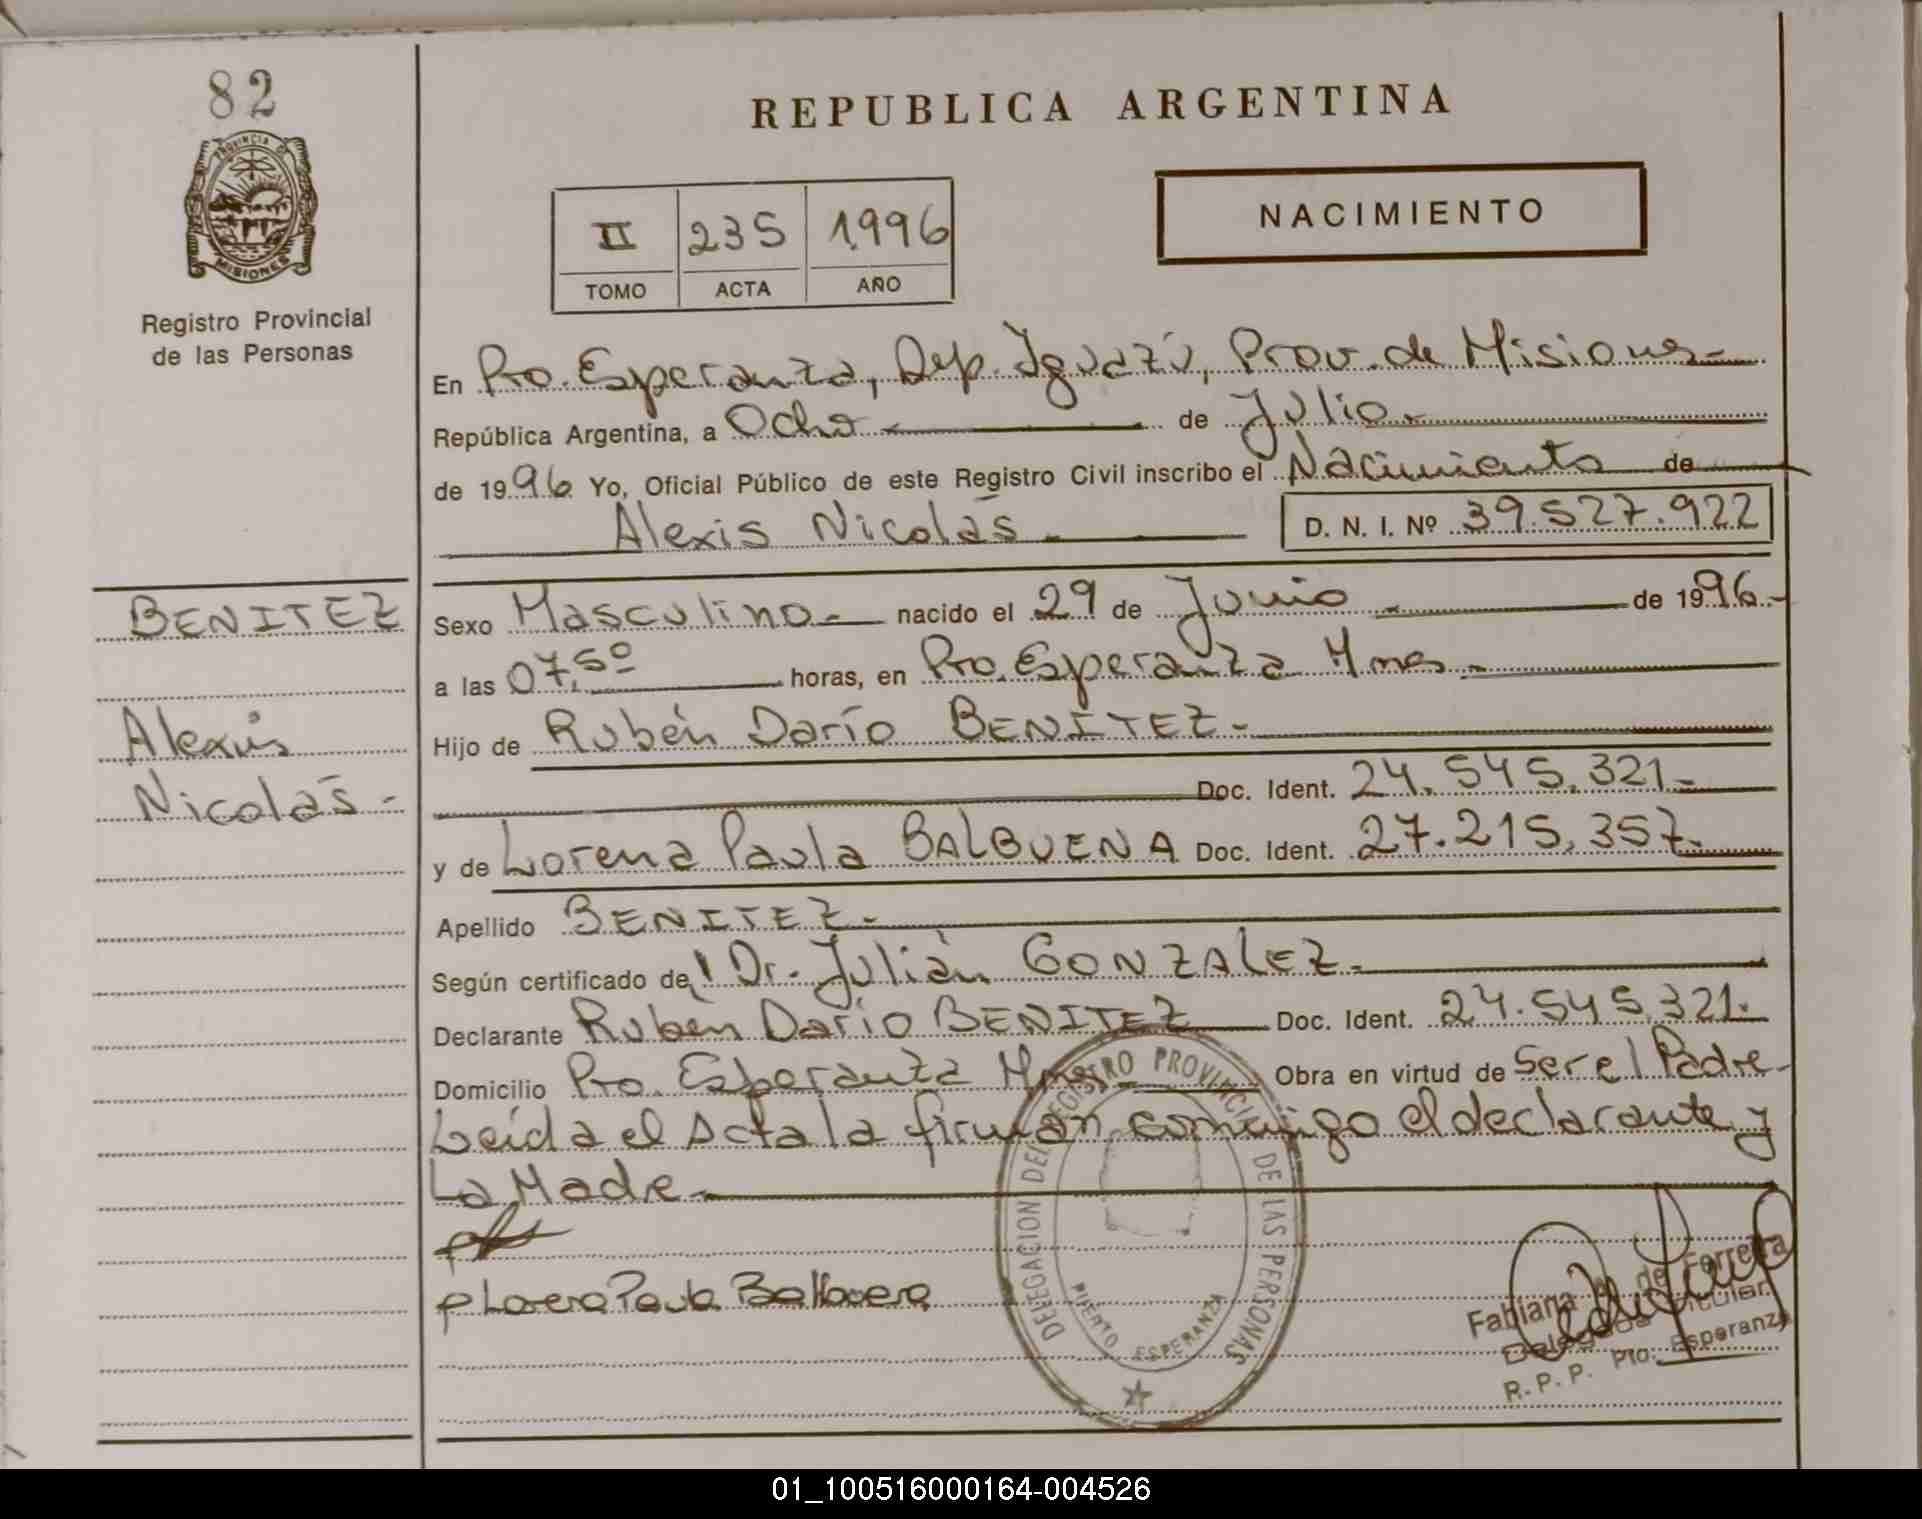 82
PROVINCIA DE
MISIONES
Registro Provincial
de las Personas
REPUBLICA ARGENTINA
II 235 1996
TOMO ACTA AÑO
NACIMIENTO
En Pto. Esperanza, Dep. Iguazú, Prov. de Misiones-
República Argentina, a Ocho - de Julio.-
de 1996. Yo, Oficial Público de este Registro Civil inscribo el Nacimiento de
Alexis Nicolás - D. N. I. Nº 39.527.922
BENITEZ
Alexis
Nicolás -
Sexo Masculino.- nacido el 29 de Junio - de 1996.-
a las 07,50 horas, en Pto. Esperanza Mnes.-
Hijo de Rubén Darío BENITEZ-
Doc. Ident. 24.545.321.-
y de Lorena Paula BALBUENA Doc. Ident. 27.215.357.-
Apellido BENITEZ.-
Según certificado del Dr. Julián GONZALEZ.-
Declarante Rubén Darío BENITEZ Doc. Ident. 24.545.321.-
Domicilio Pto. Esperanza Mnes. Obra en virtud de Ser el Padre-
Leída el Acta la firman conmigo el declarante y
La Madre.-
Lorena Paula Balbuena
DELEGACION DEL REGISTRO PROVINCIAL DE LAS PERSONAS
PUERTO ESPERANZA
Fabiana de Ferreira
Delegada Titular
R.P.P. Pto. Esperanza
01_100516000164-004526